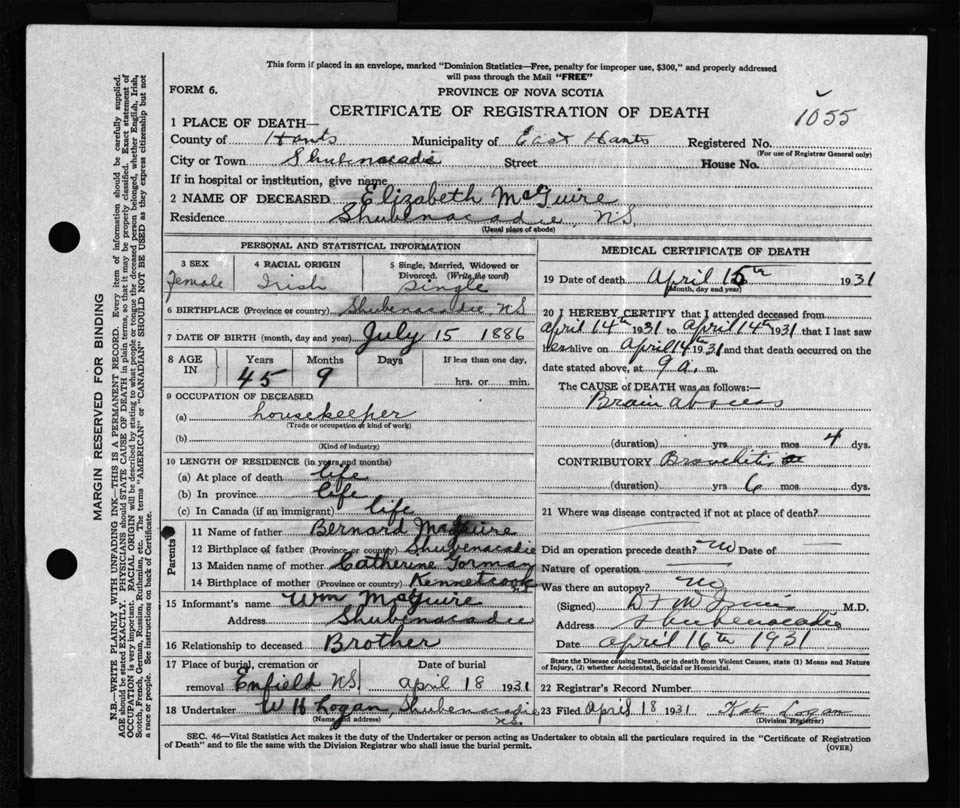 This form if placed in an envelope, marked "Dominion Statistics—Free, penalty for improper use, $300," and properly addressed
will pass through the Mail "FREE"
FORM 6.
PROVINCE OF NOVA SCOTIA
CERTIFICATE OF REGISTRATION OF DEATH
1055
1 PLACE OF DEATH—
County of Hants Municipality of East Hants Registered No.
(For use of Registrar General only)
City or Town Shubenacadie Street House No.
If in hospital or institution, give name
2 NAME OF DECEASED Elizabeth McGuire
Residence Shubenacadie, N.S.
(Usual place of abode)
PERSONAL AND STATISTICAL INFORMATION
3 SEX 4 RACIAL ORIGIN 5 Single, Married, Widowed or
Divorced. (Write the word)
Female Irish Single
6 BIRTHPLACE (Province or country) Shubenacadie, NS
7 DATE OF BIRTH (month, day and year) July 15 1886
8 AGE IN Years Months Days If less than one day,
45 9 hrs. or min.
9 OCCUPATION OF DECEASED
(a) housekeeper
(Trade or occupation or kind of work)
(b)
(Kind of industry)
10 LENGTH OF RESIDENCE (in years and months)
(a) At place of death life
(b) In province life
(c) In Canada (if an immigrant) life
Parents
11 Name of father Bernard McGuire
12 Birthplace of father (Province or country) Shubenacadie
13 Maiden name of mother Catherine Gorman
14 Birthplace of mother (Province or country) Kennetcook N.S.
15 Informant's name Wm McGuire
Address Shubenacadie
16 Relationship to deceased Brother
17 Place of burial, cremation or Date of burial
removal Enfield NS April 18 1931
18 Undertaker W H Logan, Shubenacadie N.S.
(Name and address)
MEDICAL CERTIFICATE OF DEATH
19 Date of death April 15th 1931
(Month, day and year)
20 I HEREBY CERTIFY that I attended deceased from
April 14th 1931 to April 14th 1931 that I last saw
her alive on April 14th 1931 and that death occurred on the
date stated above, at 9 a. m.
The CAUSE of DEATH was as follows:—
Brain abscess
(duration) yrs mos 4 dys.
CONTRIBUTORY Bronchitis
(duration) yrs. mos 6 dys.
21 Where was disease contracted if not at place of death?
Did an operation precede death? no Date of —
Nature of operation —
Was there an autopsy? no
(Signed) M.D.
Address Shubenacadie
Date April 16th 1931
State the Disease causing Death, or in death from Violent Causes, state (1) Means and Nature
of Injury, (2) whether Accidental, Suicidal or Homicidal.
22 Registrar's Record Number
23 Filed April 18 1931 Kate Logan
(Division Registrar)
SEC. 46—Vital Statistics Act makes it the duty of the Undertaker or person acting as Undertaker to obtain all the particulars required in the "Certificate of Registration
of Death" and to file the same with the Division Registrar who shall issue the burial permit.
(OVER)
MARGIN RESERVED FOR BINDING
N.B.—WRITE PLAINLY WITH UNFADING INK—THIS IS A PERMANENT RECORD. Every item of information should be carefully supplied.
AGE should be stated EXACTLY. PHYSICIANS should STATE CAUSE OF DEATH in plain terms, so that it may be properly classified. Exact statement of
OCCUPATION is very important. RACIAL ORIGIN will be described by stating to what people or tongue the deceased person belonged, whether English, Irish,
Scotch, French, German, Russian, Ruthenian, etc. The terms "AMERICAN" or "CANADIAN" SHOULD NOT BE USED as they express citizenship but not
a race or people. See instructions on back of Certificate.